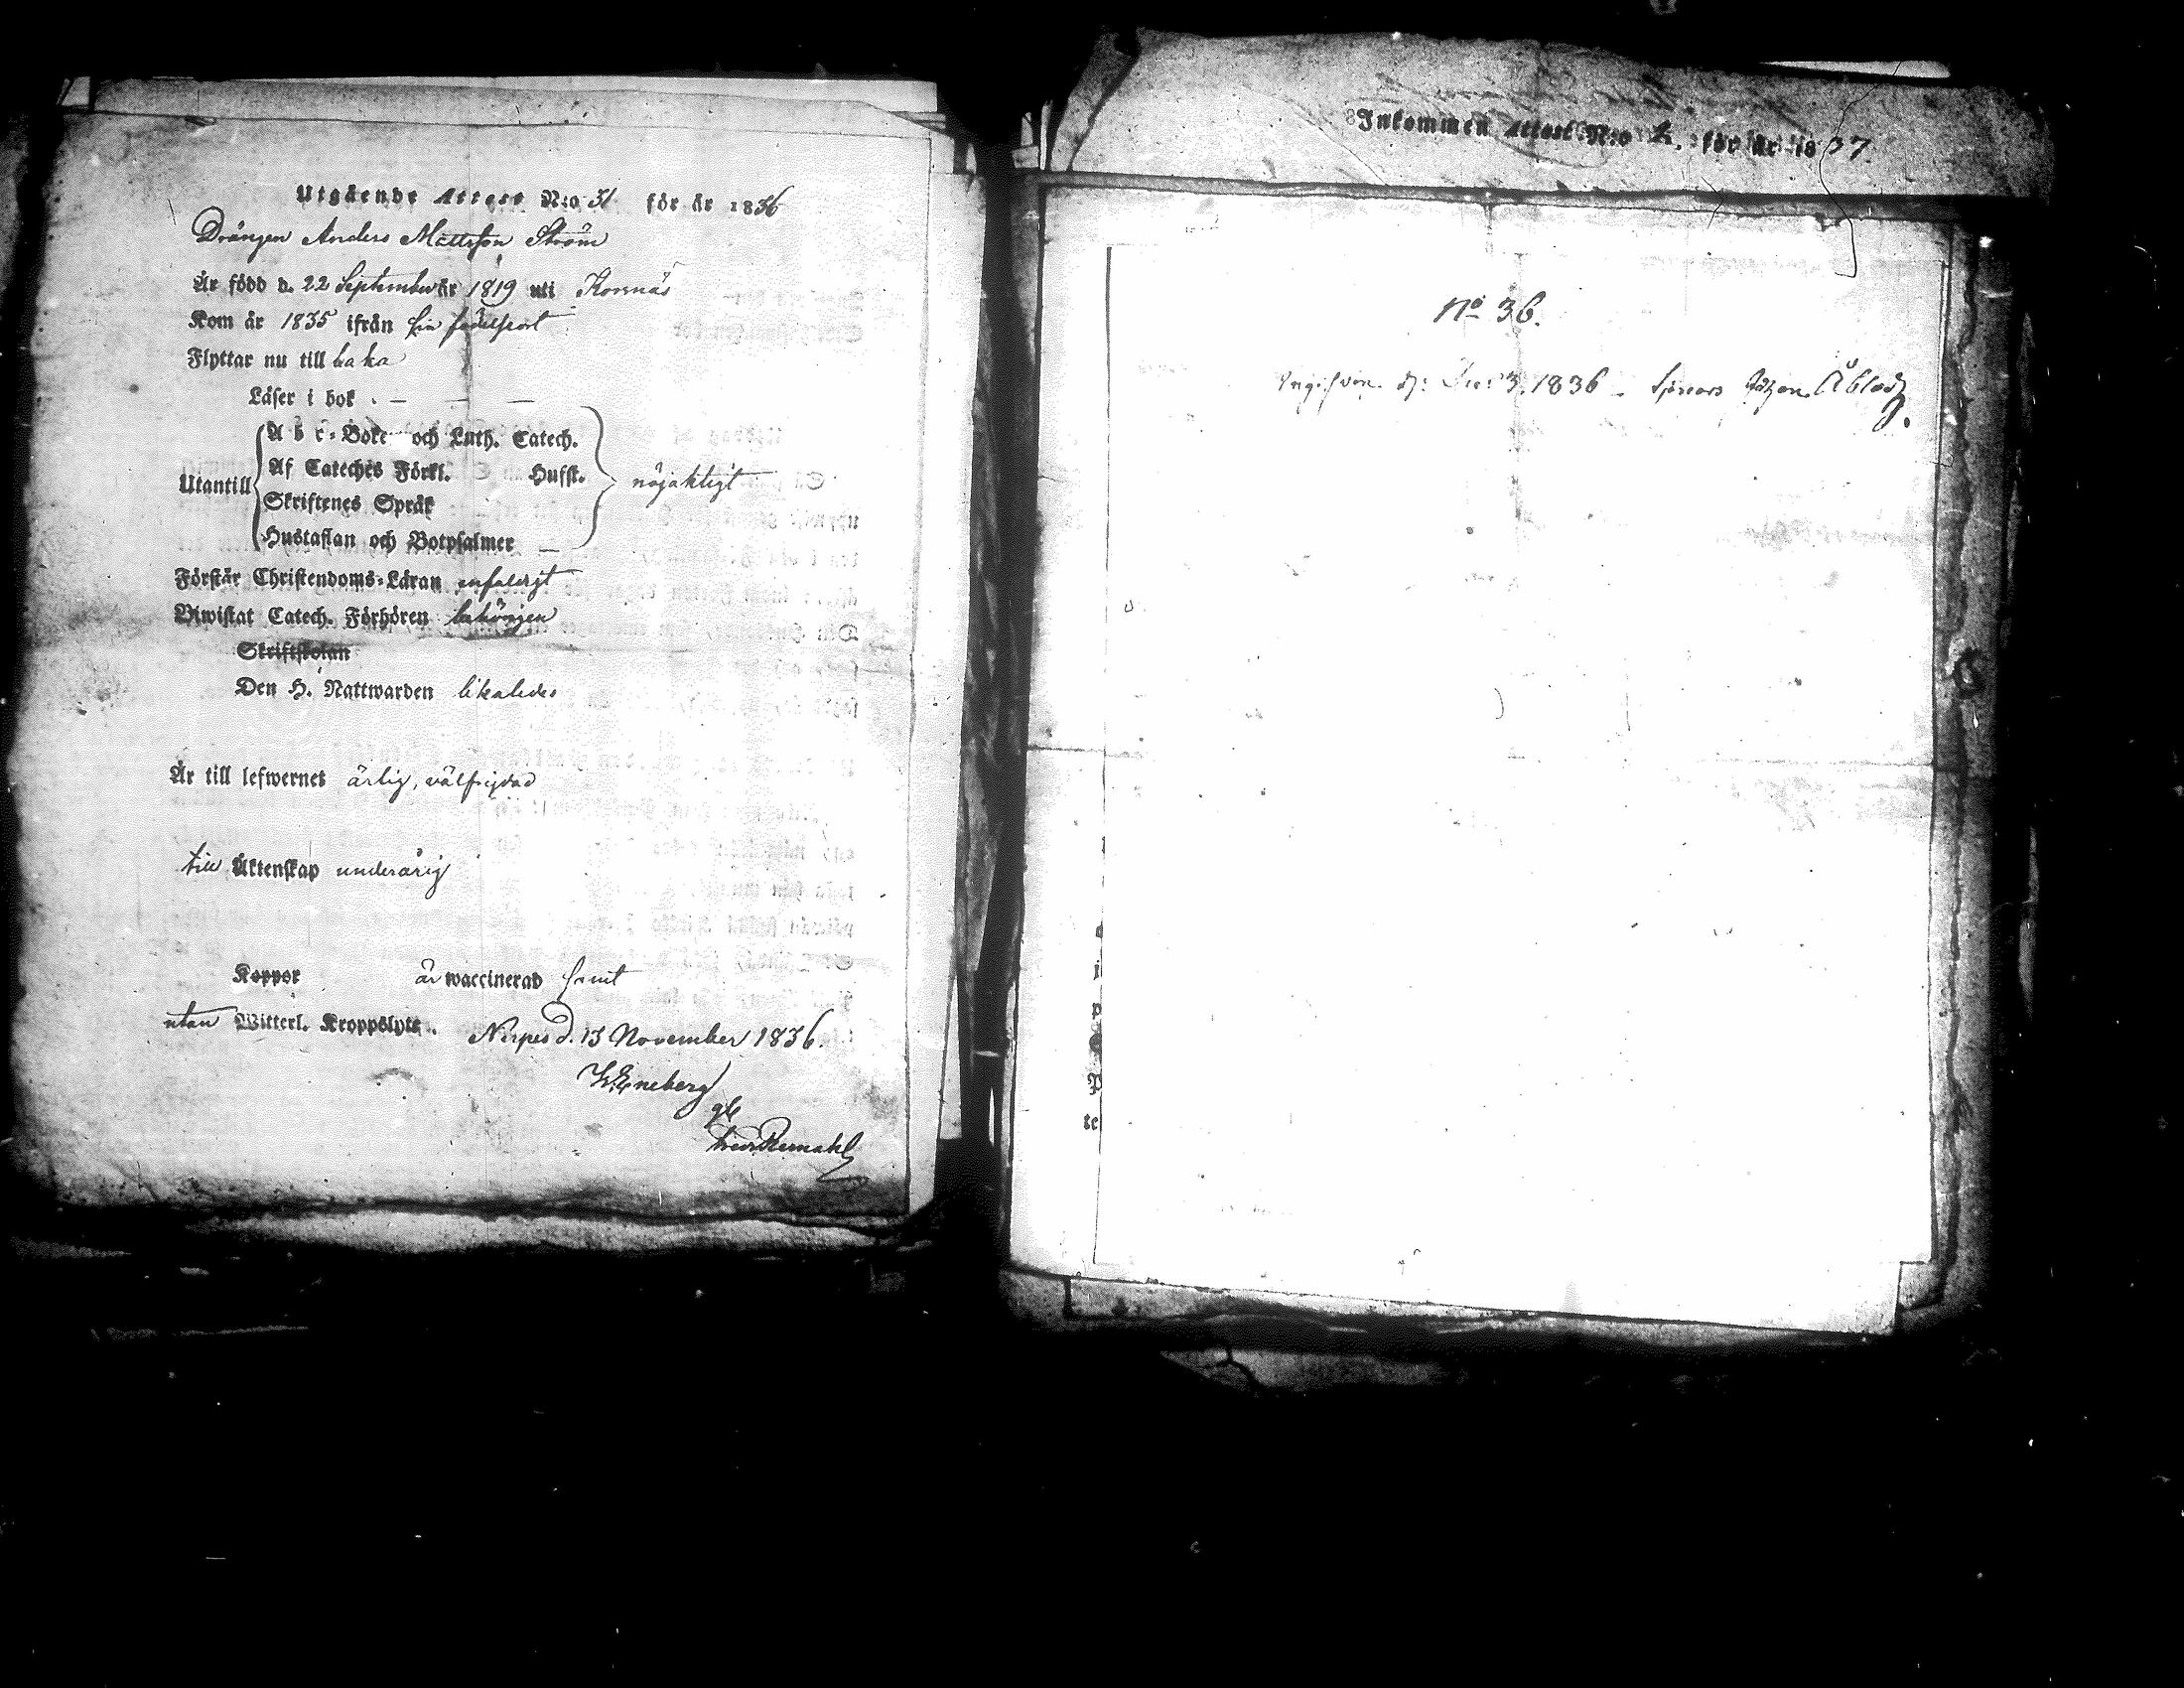 Utgående Attest N:o 31 för år 1836
Drängen Anders Mattsson Ström
Är född d. 22 September år 1819 uti Korsnäs
Kom år 1835 ifrån sin födelseort
Flyttar nu till baka
Läser i bok . — — —
A b c-Boke och Luth. Catech.
Af Cateches Förkl. Hussk.
Utantill nöjaktigt
Skriftenes Språk
Hustaflan och Botpsalmer —
Förstår Christendoms-Läran enfaldigt
Biwistat Catech. Förhören behörigen
Skriftskolan
Den H. Nattwarden likaledes
Är till lefwernet ärlig, välfrejdad
till Äktenskap underårig
Koppor är waccinerad samt
utan Witterl. Kroppslyte.
Nerpes d. 13 November 1836.
Eneberg
Inkommen Attest N:o 2. för år 1837.
No 36.
1836